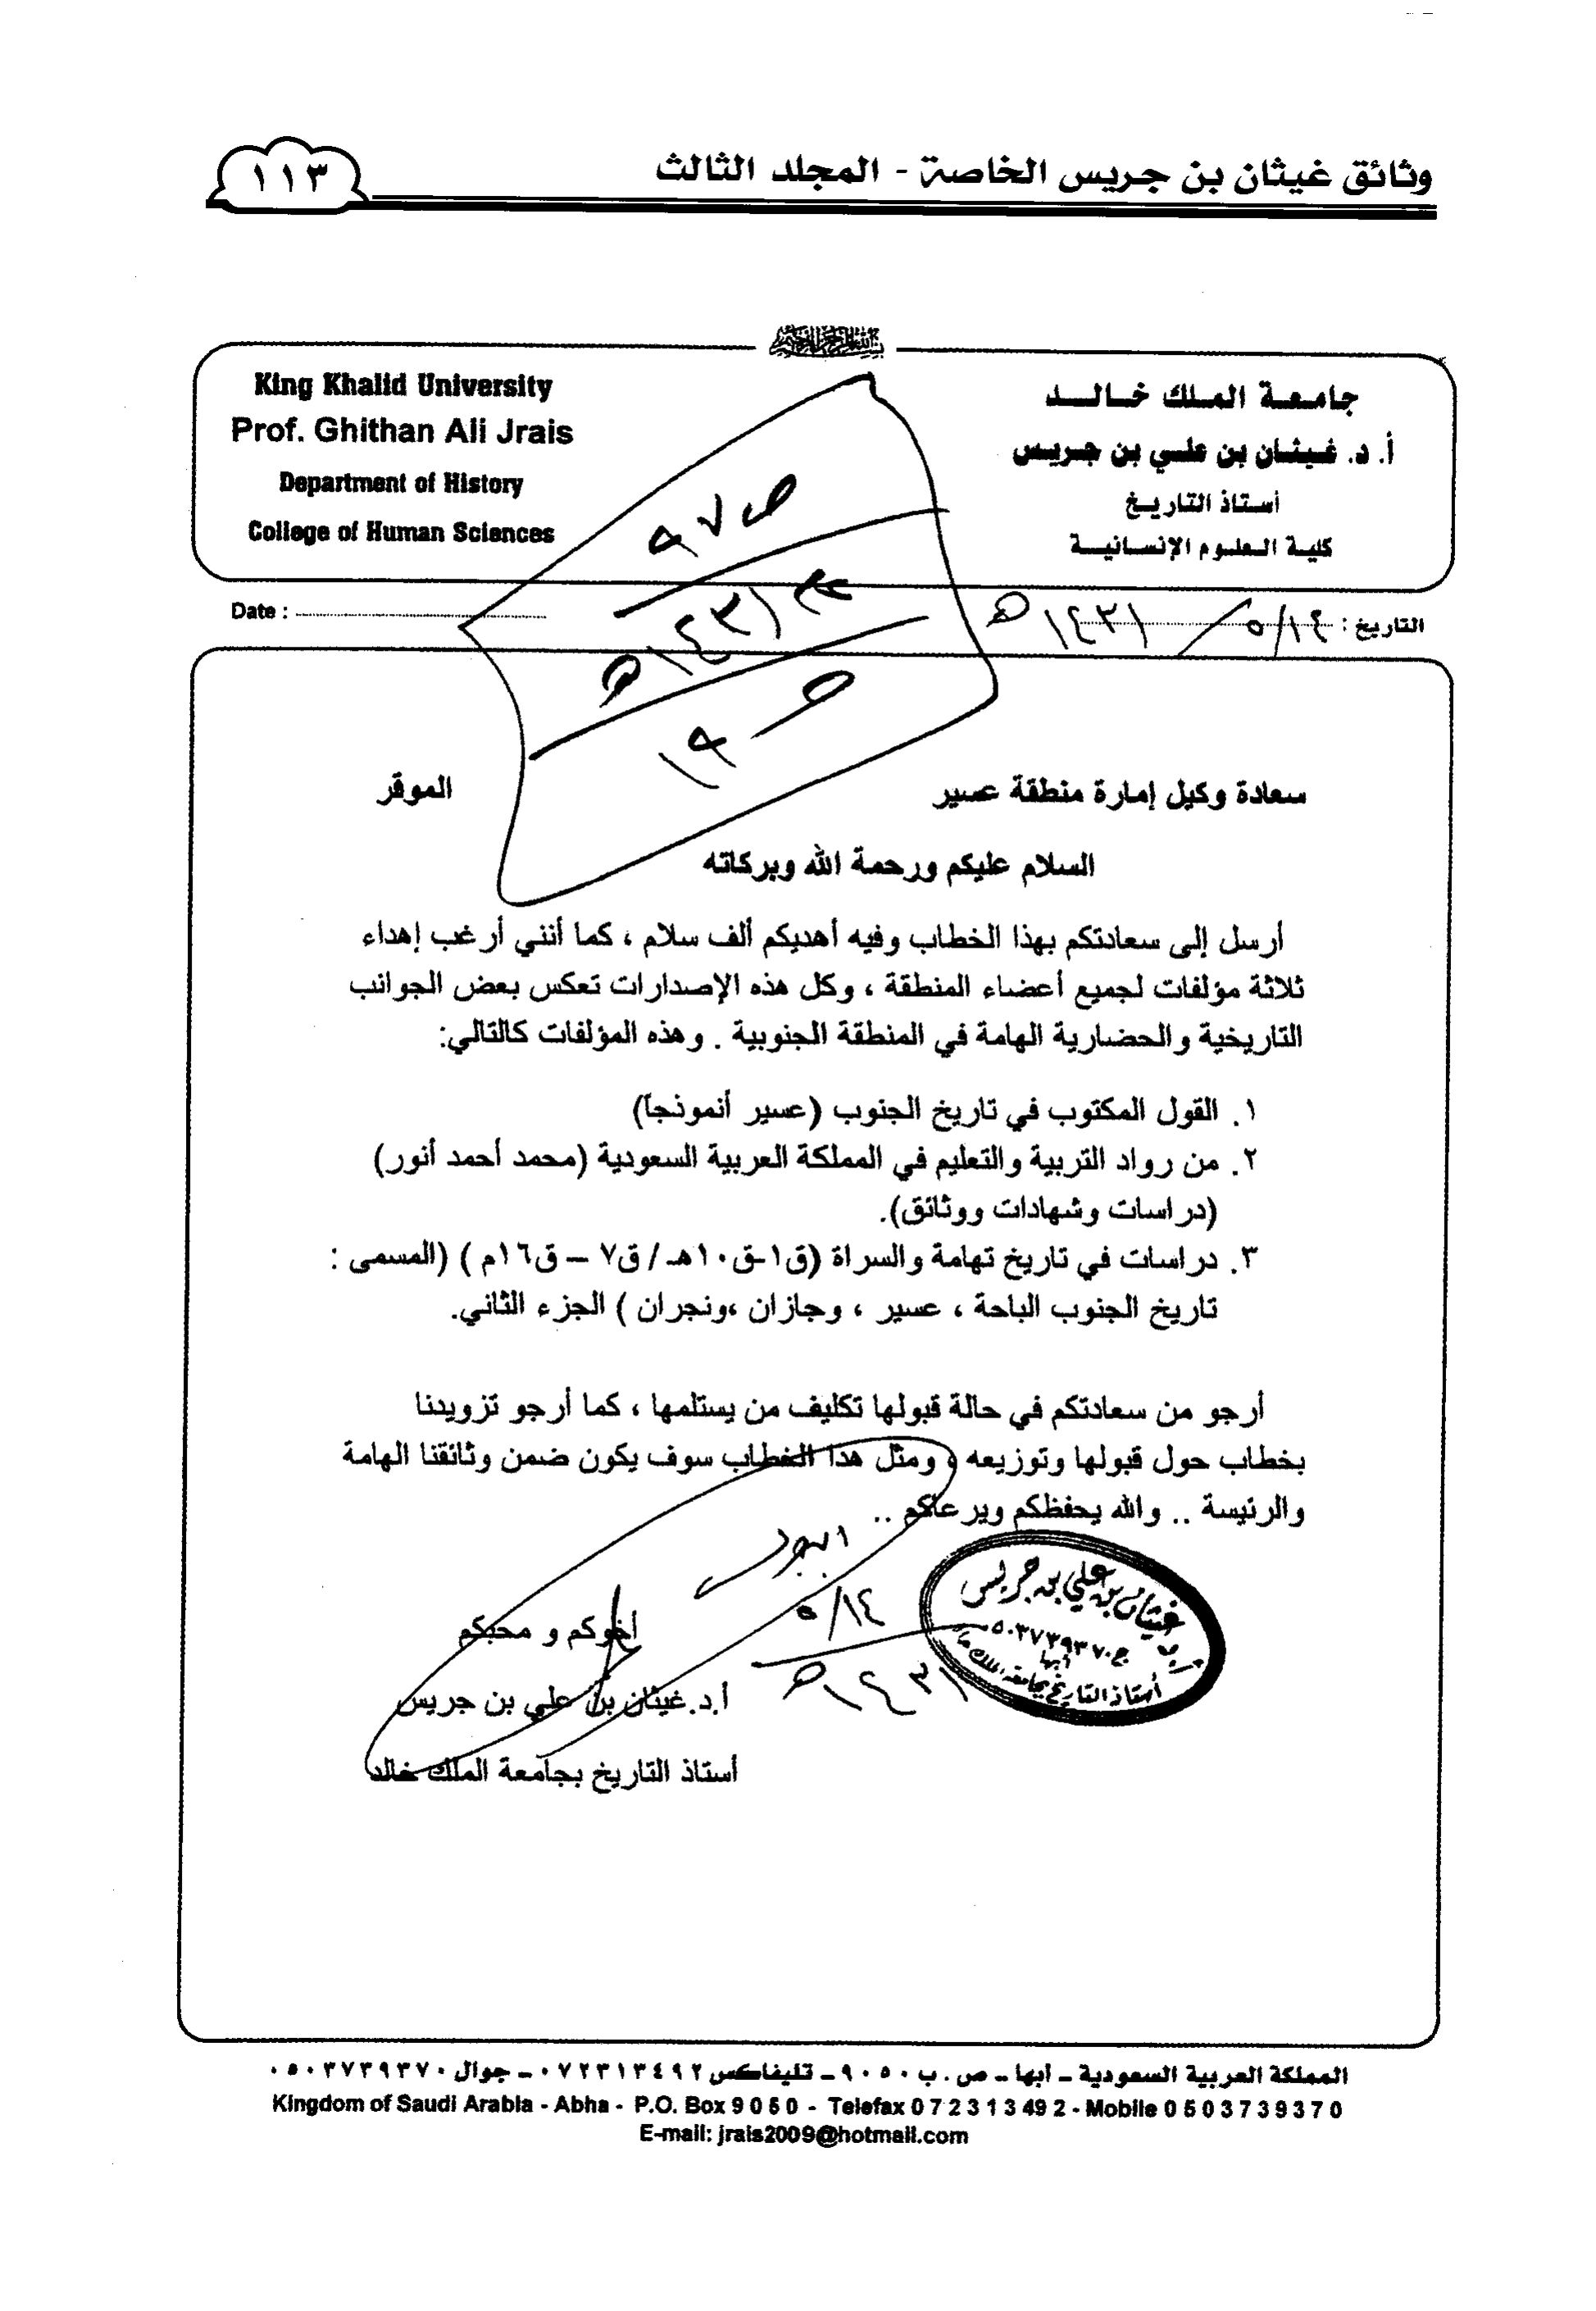 وثائق غيثان بن جريس الخاصة - المجلد الثالث
١١٣
جامعة الملك خالد
أ. د. غيثان بن علي بن جريس
أستاذ التاريخ
كلية العلوم الإنسانية
King Khalid University
Prof. Ghithan Ali Jrais
Department of History
College of Human Sciences
التاريخ : ١٤/٥/١٤٣١هـ
Date :
سعادة وكيل إمارة منطقة عسير الموقر
السلام عليكم ورحمة الله وبركاته
أرسل إلى سعادتكم بهذا الخطاب وفيه أهديكم ألف سلام ، كما أنني أرغب إهداء
ثلاثة مؤلفات لجميع أعضاء المنطقة ، وكل هذه الإصدارات تعكس بعض الجوانب
التاريخية والحضارية الهامة في المنطقة الجنوبية . وهذه المؤلفات كالتالي:
١. القول المكتوب في تاريخ الجنوب (عسير أنموذجاً)
٢. من رواد التربية والتعليم في المملكة العربية السعودية (محمد أحمد أنور)
(دراسات وشهادات ووثائق).
٣. دراسات في تاريخ تهامة والسراة (ق١-ق١٠هـ / ق٧ – ق١٦م ) (المسمى :
تاريخ الجنوب الباحة ، عسير ، وجازان ،ونجران ) الجزء الثاني.
أرجو من سعادتكم في حالة قبولها تكليف من يستلمها ، كما أرجو تزويدنا
بخطاب حول قبولها وتوزيعه ، ومثل هذا الخطاب سوف يكون ضمن وثائقنا الهامة
والرئيسة .. والله يحفظكم ويرعاكم ..
١٤/٥
١٤٣١هـ
غيثان بن علي بن جريس
ج ٠٥٠٣٧٣٩٣٧٠
أبها
أستاذ التاريخ بجامعة الملك خالد
أخوكم و محبكم
أ.د.غيثان بن علي بن جريس
أستاذ التاريخ بجامعة الملك خالد
المملكة العربية السعودية – أبها – ص . ب ٩٠٥٠ – تليفاكس ٠٧٢٣١٣٤٩٢ – جوال ٠٥٠٣٧٣٩٣٧٠
Kingdom of Saudi Arabia - Abha - P.O. Box 9 0 5 0 - Telefax 0 7 2 3 1 3 49 2 - Mobile 0 5 0 3 7 3 9 3 7 0
E-mail: jrais2009@hotmail.com